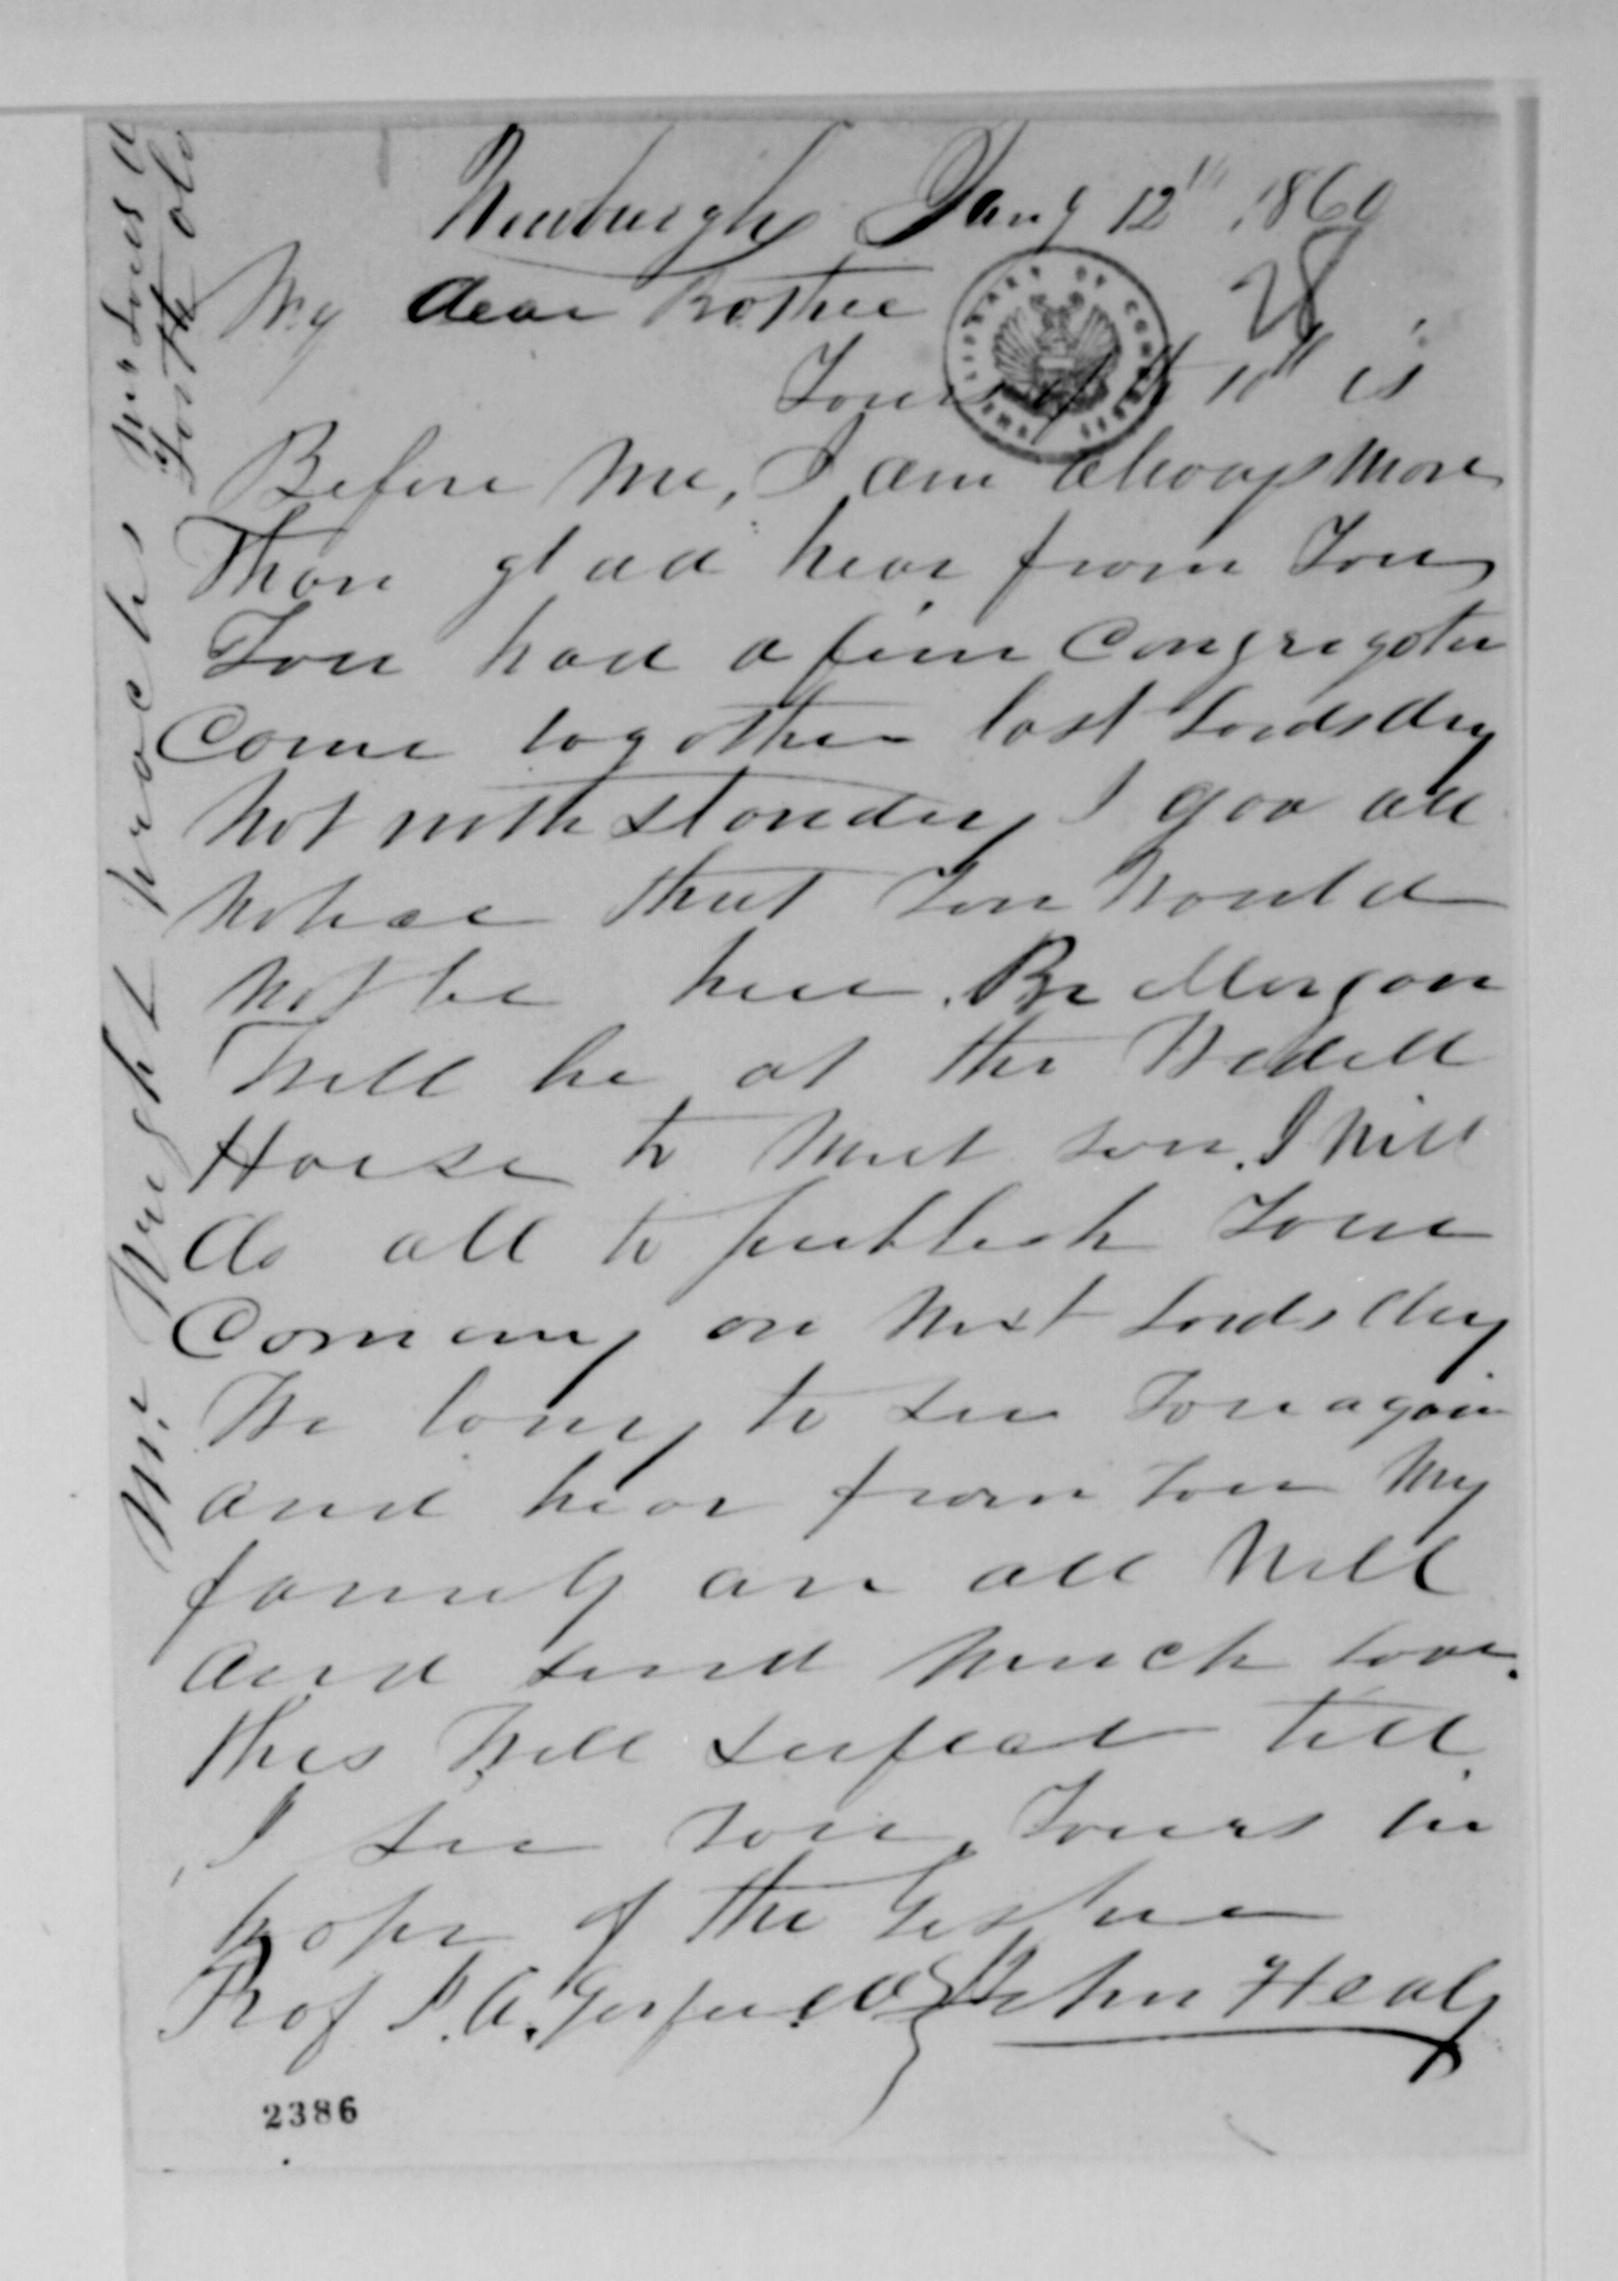 Newburgh Jany 12th 1860
28
My dear Brother
Yours of the 10th is
Before me, I am always more
Than glad hear from You
You had a fine Congregation
Come together last Lords day
Not withstanding I gav all
notice that You Would
not be here. Br Morgan
Will be at the Wedell
House to meet you. I will
do all to publish Your
Coming on next Lords day
We long to see You again
and hear from You My
family are all Well
and send much love.
this Will sufice till
I see You, Yours in
hope of the
Prof J. A. Garfield } John Healy
2386
Mr Wright preaches
LIBRARY OF CONGRESS